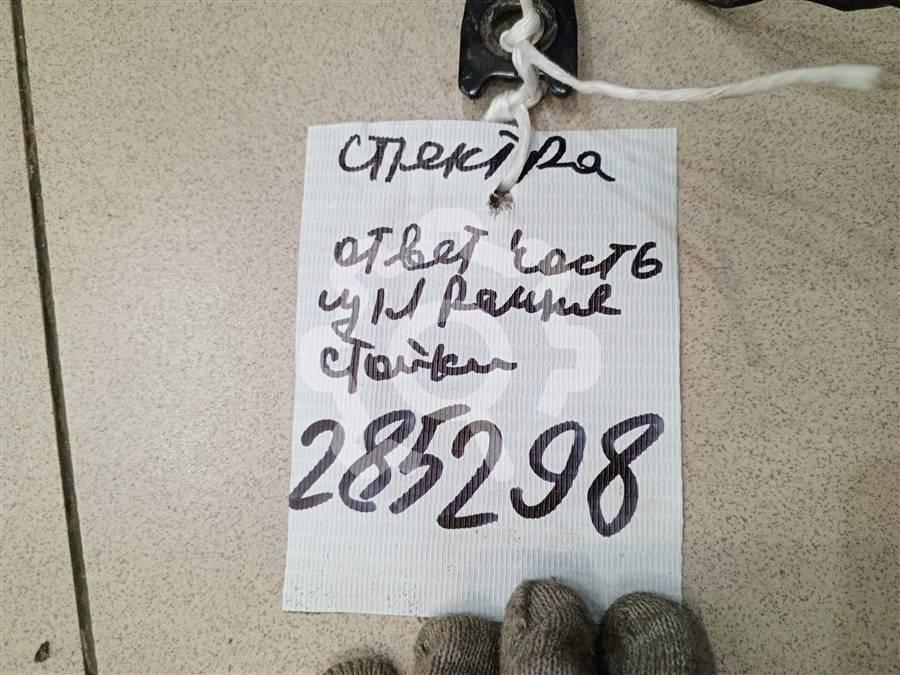 спектра
ответ часть
стойки
285298